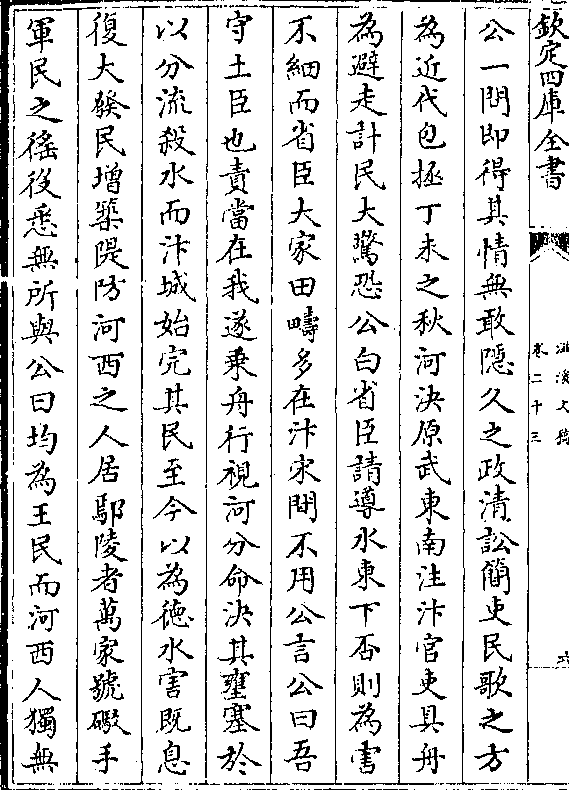 欽定四庫全書
滋溪文稿
卷二十三
公一問即得其情無敢隱久之政清訟簡吏民歌之方
為近代包拯丁未之秋河決原武東南注汴官吏具舟
為避走計民大驚恐公白省臣請導水東下否則為害
不細而省臣大家田疇多在汴宋間不用公言公曰吾
守土臣也責當在我遂乘舟行視河分命決其壅塞於
以分流殺水而汴城始完其民至今以為徳水害既息
復大發民增築隄防河西之人居鄢陵者萬家號礮手
軍民之徭役悉無所與公曰均為王民而河西人獨無